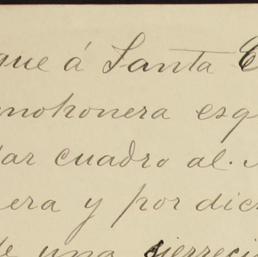 que á Santa
mohonera esq
dar cuadro al.
era y por dic
de una sierreci